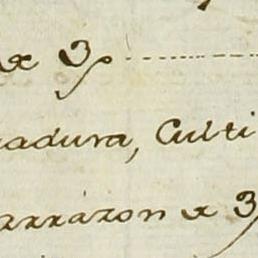 3
adura, Culti
arrazon a 3